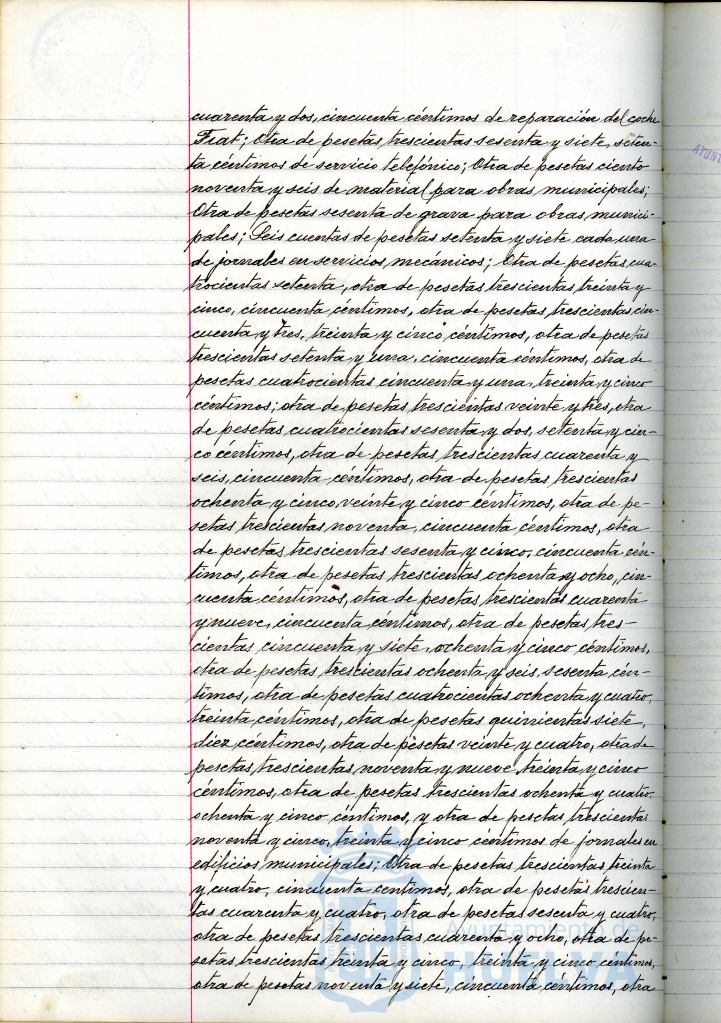 cuarenta y dos, cincuenta céntimos de reparación del coche
Fiat; Otra de pesetas trescientas sesenta y siete, seten-
ta céntimos de servicio telefónico; Otra de pesetas ciento
noventa y seis de material para obras municipales;
Otra de pesetas sesenta de grava para obras munici-
pales; Seis cuentas de pesetas setenta y siete cada una
de jornales en servicios mecánicos; Otra de pesetas cua-
trocientas setenta, otra de pesetas trescientas treinta y
cinco, cincuenta céntimos, otra de pesetas trescientas cin-
cuenta y tres, treinta y cinco céntimos, otra de pesetas
trescientas setenta y una, cincuenta céntimos, otra de
pesetas cuatrocientas cincuenta y una, treinta y cinco
céntimos; otra de pesetas trescientas veinte y tres, otra
de pesetas cuatrocientas sesenta y dos, setenta y cin-
co céntimos, otra de pesetas trescientas cuarenta y
seis, cincuenta céntimos, otra de pesetas trescientas
ochenta y cinco, veinte y cinco céntimos, otra de pe-
setas trescientas noventa, cincuenta céntimos, otra
de pesetas trescientas sesenta y cinco, cincuenta cén-
timos, otra de pesetas trescientas ochenta y ocho, cin-
cuenta céntimos, otra de pesetas trescientas cuarenta
y nueve, cincuenta céntimos, otra de pesetas tres-
cientas cincuenta y siete, ochenta y cinco céntimos,
otra de pesetas trescientas ochenta y seis, sesenta cén-
timos, otra de pesetas cuatrocientas ochenta y cuatro,
treinta céntimos, otra de pesetas quinientas siete,
diez céntimos, otra de pesetas veinte y cuatro, otra de
pesetas trescientas noventa y nueve, treinta y cinco
céntimos, otra de pesetas trescientas ochenta y cuatro,
ochenta y cinco céntimos, y otra de pesetas trescientas
noventa y cinco, treinta y cinco céntimos de jornales en
edificios municipales; Otra de pesetas trescientas treinta
y cuatro, cincuenta centimos, otra de pesetas trescien-
tas cuarenta y cuatro, otra de pesetas sesenta y cuatro,
otra de pesetas trescientas cuarenta y ocho, otra de pe-
setas trescientas treinta y cinco, treinta y cinco céntimos,
otra de pesetas noventa y siete, cincuenta céntimos, otra
Ayuntamiento de
HUELVA
AYUNT